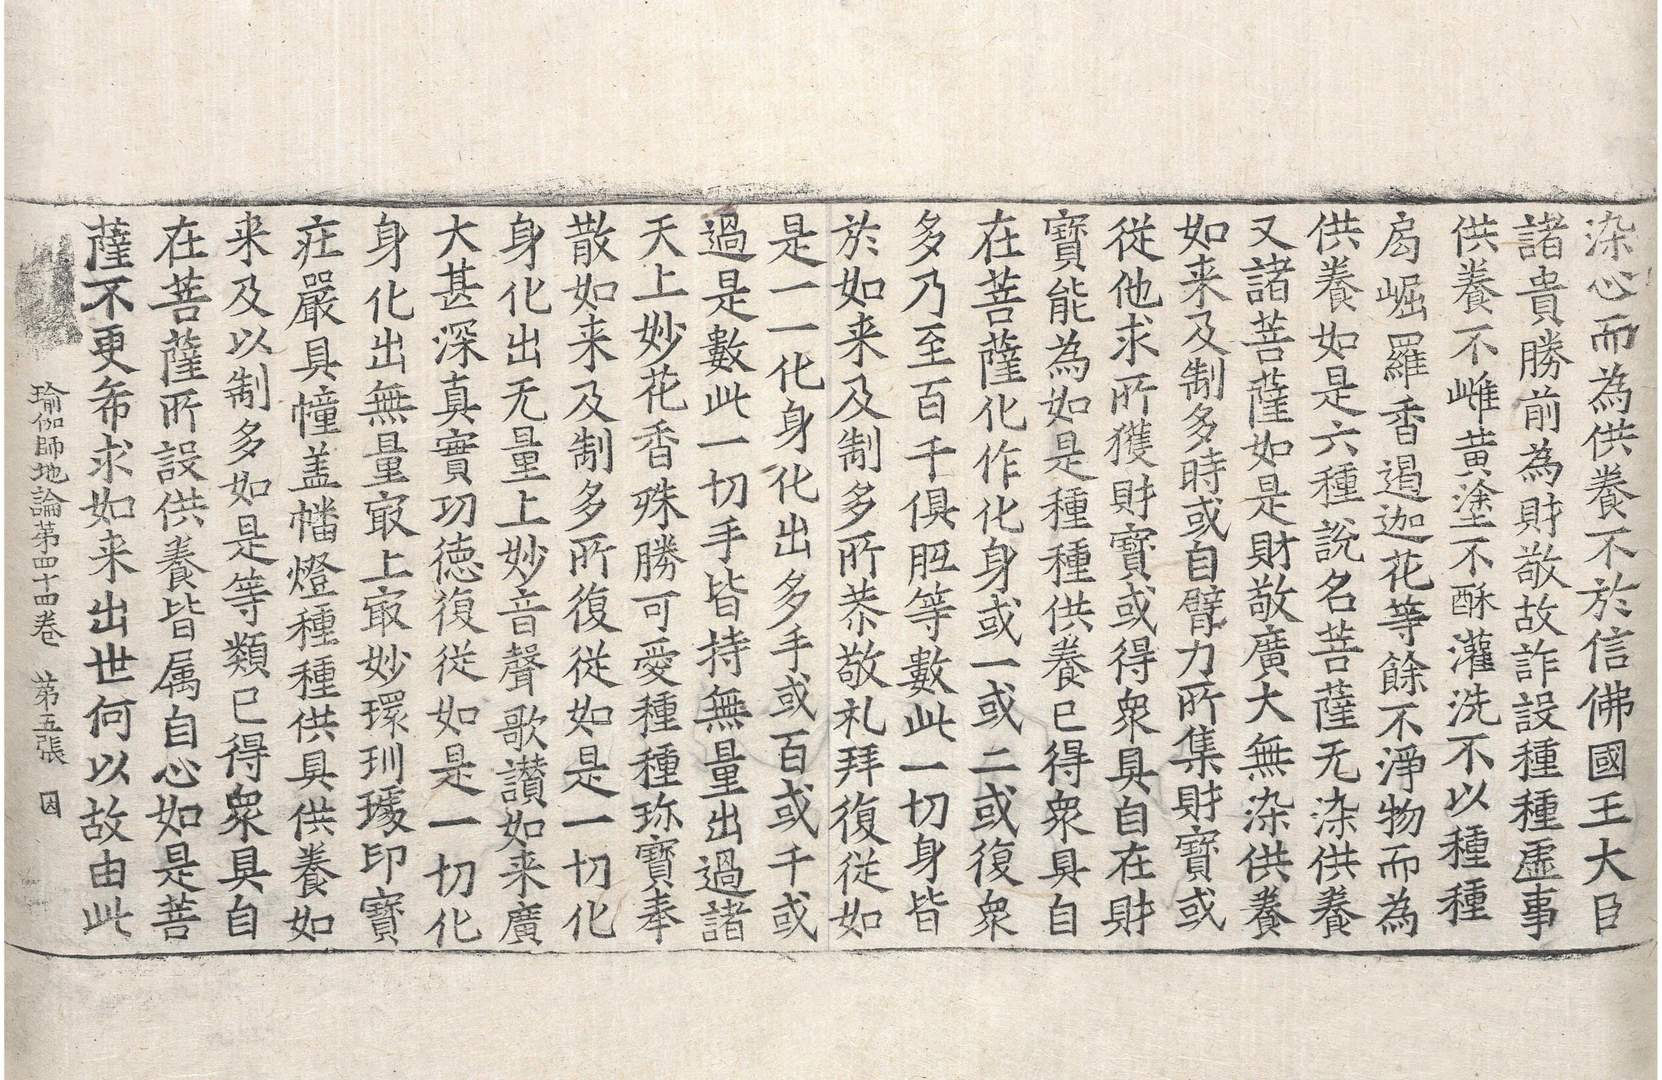 染心而為供養不於信佛國王大臣
諸貴勝前為財敬故詐設種種虛事
供養不雌黃塗不酥灌洗不以種種
局崛羅香遏迦花等餘不淨物而為
供養如是六種說名菩薩无染供養
又諸菩薩如是財敬廣大無染供養
如来及制多時或自臂力所集財寶或
從他求所獲財寶或得衆具自在財
寶能為如是種種供養已得衆具自
在菩薩化作化身或一或二或復衆
多乃至百千俱胝等數此一切身皆
於如来及制多所恭敬礼拜復從如
是一一化身化出多手或百或千或
過是數此一切手皆持無量出過諸
天上妙花香殊勝可愛種種珎寶奉
散如来及制多所復從如是一切化
身化出无量上妙音聲歌讚如来廣
大甚深真實功德復從如是一切化
身化出無量㝡上㝡妙環玔璩印寶
莊嚴具幢盖幡燈種種供具供養如
来及以制多如是等類已得衆具自
在菩薩所設供養皆属自心如是菩
薩不更希求如来出世何以故由此
瑜伽師地論第四十四卷 第五張 因